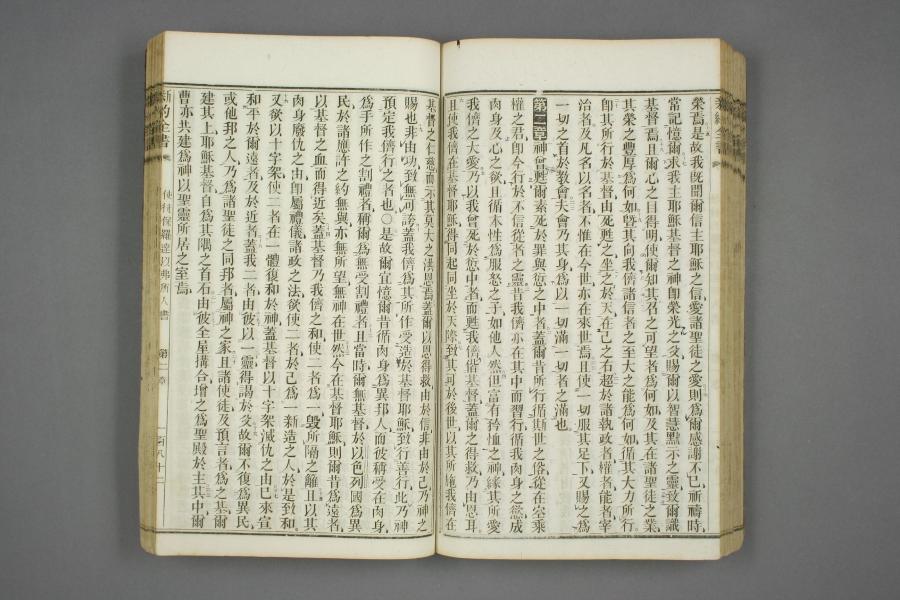 榮焉是故我既聞爾信主耶穌之信愛諸聖徒之愛則爲爾感謝不已祈禱時
當記憶爾求我主耶穌基督之神卽榮光之父賜爾以智慧默示之靈致爾識
基督焉且爾心之目得明使爾知其名之可望者爲何如及其在諸聖徒之業
其榮之豐厚爲何如曁其向我儕諸信者之至大之能爲何如循其大力所行
卽其所行於基督由死甦之坐之於天在己之右超於諸執政者權者能者宰
治者及凡名以名者不惟在今世亦在來世焉且使一切服其足下又賜之爲
一切之首於敎會夫會乃其身爲以一切滿一切者之滿也
第二章神曾甦爾素死於罪與愆之中者蓋爾昔所行循斯世之俗從在空乘
權之君卽今行於不信從者之靈昔我儕亦在其中而習行循我肉身之慾成
肉身及心之欲且循本性爲服怒之子如他人然但富有矜恤之神緣其所愛
我儕之大愛乃以我曾死於愆中者而甦我儕偕基督蓋爾之得救乃由恩耳
且使我儕在基督耶穌得同起同坐於天際致其可於後世以其所施我儕在
基督之仁慈而示其莫大之恩焉蓋爾以恩得救由於信非由於己乃神之
賜也非由功致無可誇蓋我儕爲其所作受造於基督耶穌致行善行此乃神
預定我儕行之者也○是故爾宜憶爾昔循肉身爲異邦人而彼稱受在肉身
爲手所作之割禮者稱爾爲無受割禮者且當時爾無基督於以色列國爲異
民於諸應許之約無與亦無所望無神在世然今在基督耶穌則爾昔爲遠者
以基督之血而得近矣蓋基督乃我儕之和使二者爲一毀所隔之籬且以其
肉身廢仇之由卽屬禮儀諸政之法欲使二者於己爲一新造之人於是致和
又欲以十字架使二者在一體復和於神蓋基督以十字架滅仇之由已來宣
和平於爾遠者及於近者蓋我二者由彼以一靈得謁於父故爾不復爲異民
或他邦之人乃爲諸聖徒之同邦者屬神之家且諸使徒及預言者爲之基爾
建其上耶穌基督自爲其隅之首石由彼全屋搆合增之爲聖殿於主其中爾
曹亦共建爲神以聖靈所居之室焉
新約全書
使徒保羅達以弗所人書
第二章